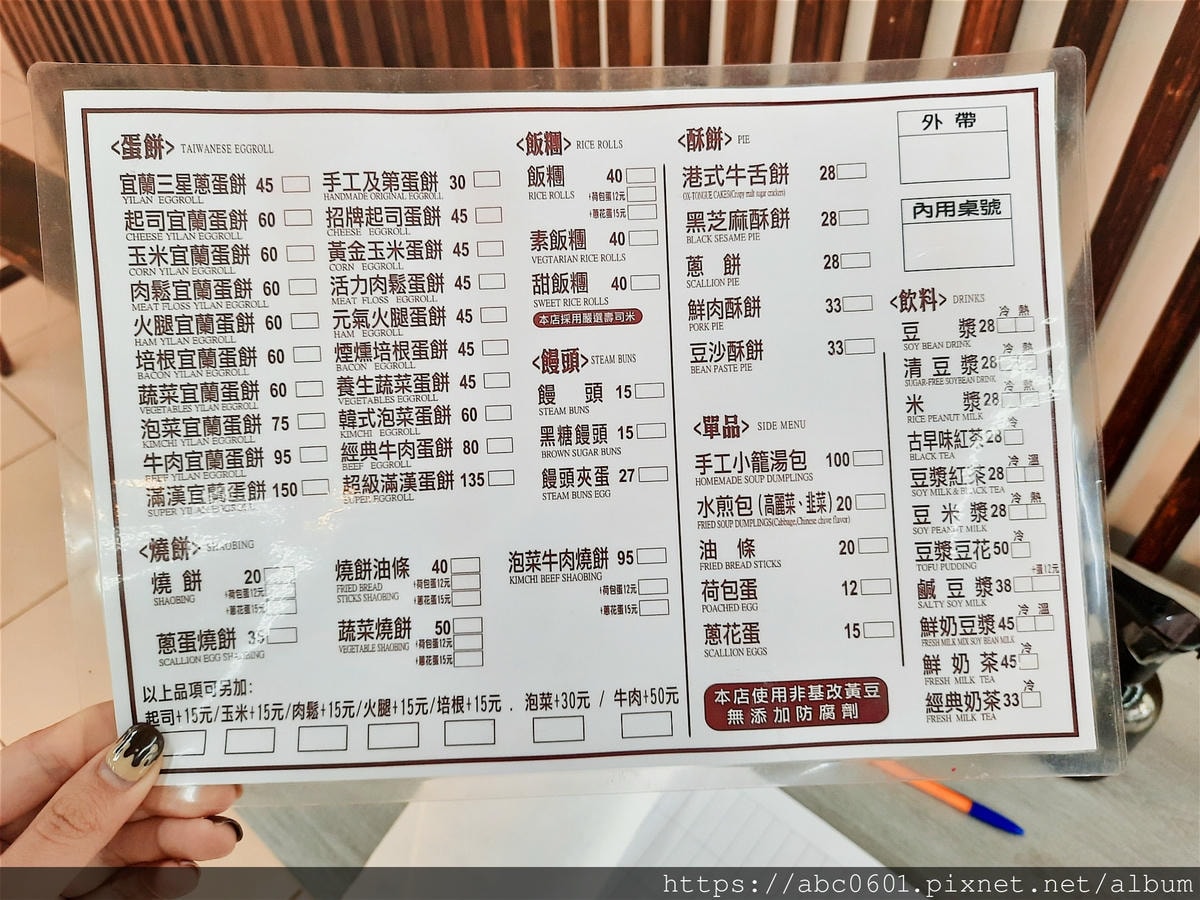 <蛋餅> TAIWANESE EGGROLL
宜蘭三星蔥蛋餅 45
YILAN EGGROLL
起司宜蘭蛋餅 60
CHEESE YILAN EGGROLL
玉米宜蘭蛋餅 60
CORN YILAN EGGROLL
肉鬆宜蘭蛋餅 60
MEAT FLOSS YILAN EGGROLL
火腿宜蘭蛋餅 60
HAM YILAN EGGROLL
培根宜蘭蛋餅 60
BACON YILAN EGGROLL
蔬菜宜蘭蛋餅 60
VEGETABLES YILAN EGGROLL
泡菜宜蘭蛋餅 75
KIMCHI YILAN EGGROLL
牛肉宜蘭蛋餅 95
BEEF YILAN EGGROLL
滿漢宜蘭蛋餅 150
SUPER YILAN EGGROLL
手工及第蛋餅 30
HANDMADE ORIGINAL EGGROLL
招牌起司蛋餅 45
CHEESE EGGROLL
黃金玉米蛋餅 45
CORN EGGROLL
活力肉鬆蛋餅 45
MEAT FLOSS EGGROLL
元氣火腿蛋餅 45
HAM EGGROLL
煙燻培根蛋餅 45
BACON EGGROLL
養生蔬菜蛋餅 45
VEGETABLES EGGROLL
韓式泡菜蛋餅 60
KIMCHI EGGROLL
經典牛肉蛋餅 80
BEEF EGGROLL
超級滿漢蛋餅 135
SUPER EGGROLL
<飯糰> RICE ROLLS
飯糰 40
RICE ROLLS +荷包蛋12元
+蔥花蛋15元
素飯糰 40
VEGTARIAN RICE ROLLS
甜飯糰 40
SWEET RICE ROLLS
本店採用嚴選壽司米
<饅頭> STEAM BUNS
饅頭 15
STEAM BUNS
黑糖饅頭 15
BROWN SUGAR BUNS
饅頭夾蛋 27
STEAM BUNS EGG
<燒餅> SHAOBING
燒餅 20
SHAOBING +荷包蛋12元
+蔥花蛋15元
蔥蛋燒餅 35
SCALLION EGG SHAOBING
燒餅油條 40
FRIED BREAD +荷包蛋12元
STICKS SHAOBING +蔥花蛋15元
蔬菜燒餅 50
VEGETABLE SHAOBING +荷包蛋12元
+蔥花蛋15元
泡菜牛肉燒餅 95
KIMCHI BEEF SHAOBING
+荷包蛋12元
+蔥花蛋15元
以上品項可另加:
起司+15元/玉米+15元/肉鬆+15元/火腿+15元/培根+15元 . 泡菜+30元 / 牛肉+50元
<酥餅> PIE
港式牛舌餅 28
OX-TONGUE CAKES(Crispy malt sugar crackers)
黑芝麻酥餅 28
BLACK SESAME PIE
蔥餅 28
SCALLION PIE
鮮肉酥餅 33
PORK PIE
豆沙酥餅 33
BEAN PASTE PIE
<單品> SIDE MENU
手工小籠湯包 100
HOMEMADE SOUP DUMPLINGS
水煎包(高麗菜、韭菜) 20
FRIED SOUP DUMPLINGS(Cabbage,Chinese chive flavor)
油條 20
FRIED BREAD STICKS
荷包蛋 12
POACHED EGG
蔥花蛋 15
SCALLION EGGS
本店使用非基改黃豆
無添加防腐劑
外帶
內用桌號
<飲料> DRINKS
冷 熱
豆漿 28
SOY BEAN DRINK
冷 熱
清豆漿 28
SUGAR-FREE SOYBEAN DRINK
冷 熱
米漿 28
RICE PEANUT MILK
冷
古早味紅茶 28
BLACK TEA
冷 溫
豆漿紅茶 28
SOY MILK & BLACK TEA
冷 熱
豆米漿 28
SOY PEANUT MILK
冷
豆漿豆花 50
TOFU PUDDING
+蛋12元
鹹豆漿 38
SALTY SOY MILK
冷 溫
鮮奶豆漿 45
FRESH MILK MIX SOY BEAN MILK
冷
鮮奶茶 45
FRESH MILK TEA
冷
經典奶茶 33
FRESH MILK TEA
https://abc0601.pixnet.net/album